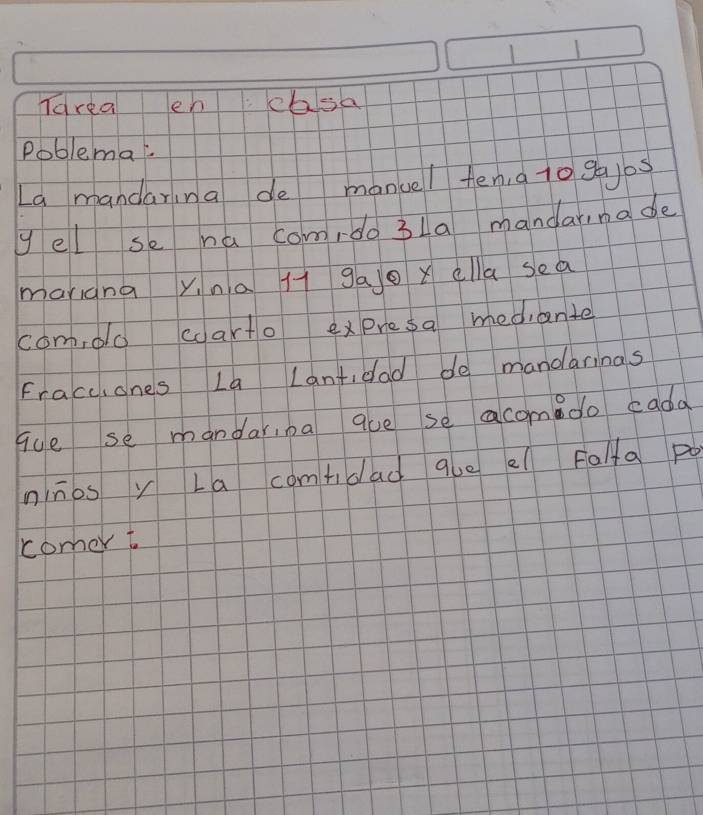 Tarea en casa
Poblema:
La mandarina de manuel tenia 10 gajos
y el se ha comido 3 La mandarina de
mariana yinia 11 gajo y ella sea
comido cuarto expresa mediante
Fracciones La Lantidad de mandarinas
que se mandarina que se acomido cada
niños y La comtidad que el Falta po
comer: